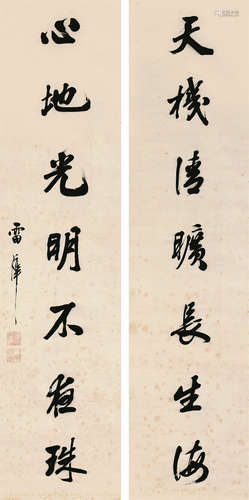 天機清曠長生海
心地光明不夜珠
雷